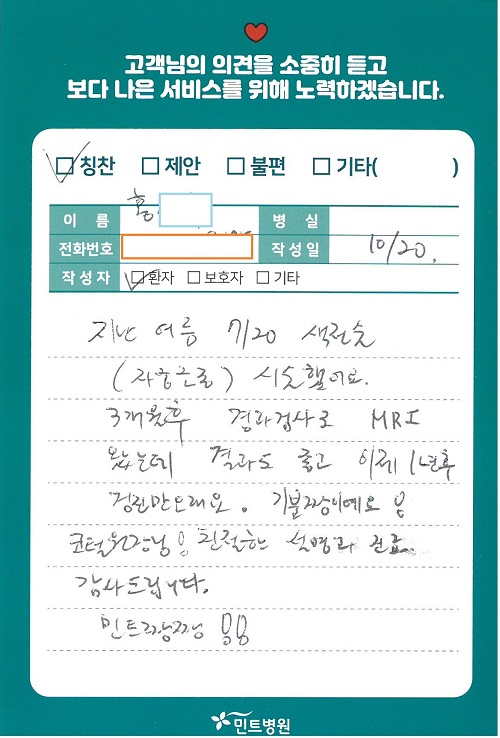 고객님의 의견을 소중히 듣고
보다 나은 서비스를 위해 노력하겠습니다.
칭찬 제안 불편 기타( )
이 름 홍 병 실
전화번호 작성일 10/20.
작성자 환자 보호자 기타
지난 여름 7/20 색전술
(자궁근종) 시술했어요.
3개월후 경과검사로 MRI
왔는데 결과도 좋고 이제 1년후
검진만오래요. 기분짱이예요
원장님 친절한 설명과 진료
감사드립니다.
민트짱짱
민트병원